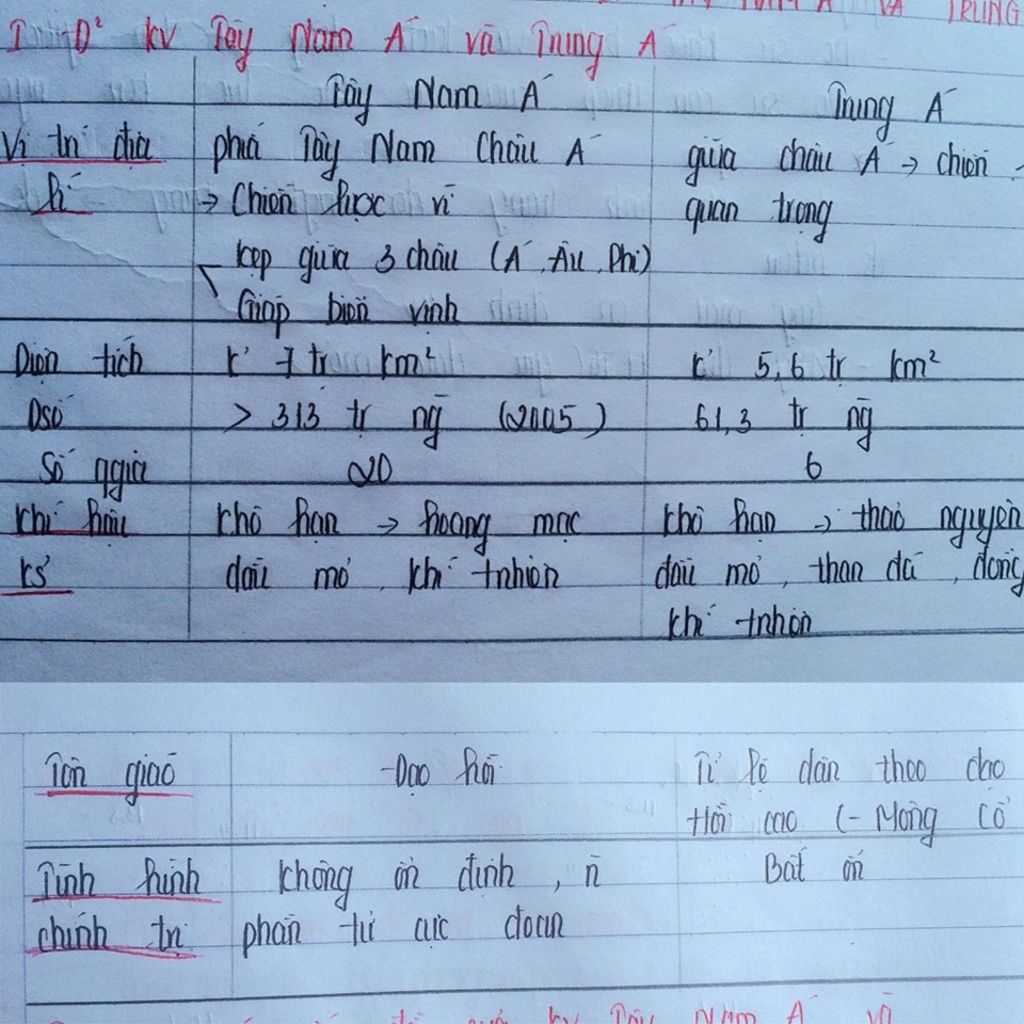 VÀ TRUNG
I - Đ² kv Tây Nam Á và Trung Á
Tây Nam Á
Trung Á
Vị trí địa
lí
phía Tây Nam Châu Á
→ Chiến lược vì
kẹp giữa 3 châu (Á, Âu, Phi)
Giáp biển vịnh
giữa châu Á → chiến
quan trọng
Diện tích
7 tr km²
5,6 tr km²
Dsố
> 313 tr ng (2005)
61,3 tr ng
Số qgia
20
6
Khí hậu
khô hạn → hoang mạc
khô hạn → thảo nguyên
KS
dầu mỏ, khí tnhiên
dầu mỏ, than đá, đồng
khí tnhiên
Tôn giáo
Đạo hồi
Tỉ lệ dân theo đạo
Hồi cao (- Mông Cổ
Tình hình
chính trị
không ổn định, n̄
phần tử cực đoan
Bất ổn
kv Tây Nam Á và